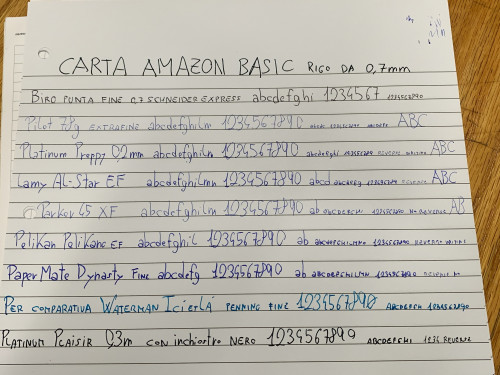 CARTA AMAZON BASIC RIGO DA 0,7mm
BIRO PUNTA FINE 0,7 SCHNEIDER EXPRESS abcdefghi 1234567 1234567890
Pilot 78g EXTRAFINE abcdefghilm 1234567890 ABC
Platinum Preppy 0,2mm abcdefghilm 1234567890 ABC
Lamy Al-Star EF abcdefghilmn 1234567890 abcd ABC
Parker 45 XF abcdefghilm 1234567890 ab AB
Pelikan Pelikano EF abcdefghil 1234567890 ab
PaperMate Dynasty FINE abcdefg 1234567890 ab
PER COMPARATIVA WATERMAN ICI E LÁ PENNINO FINE 1234567890 1234567890
PLATINUM PLAISIR 0,3m CON INCHIOSTRO NERO 1234567890 ABCDEFGHI